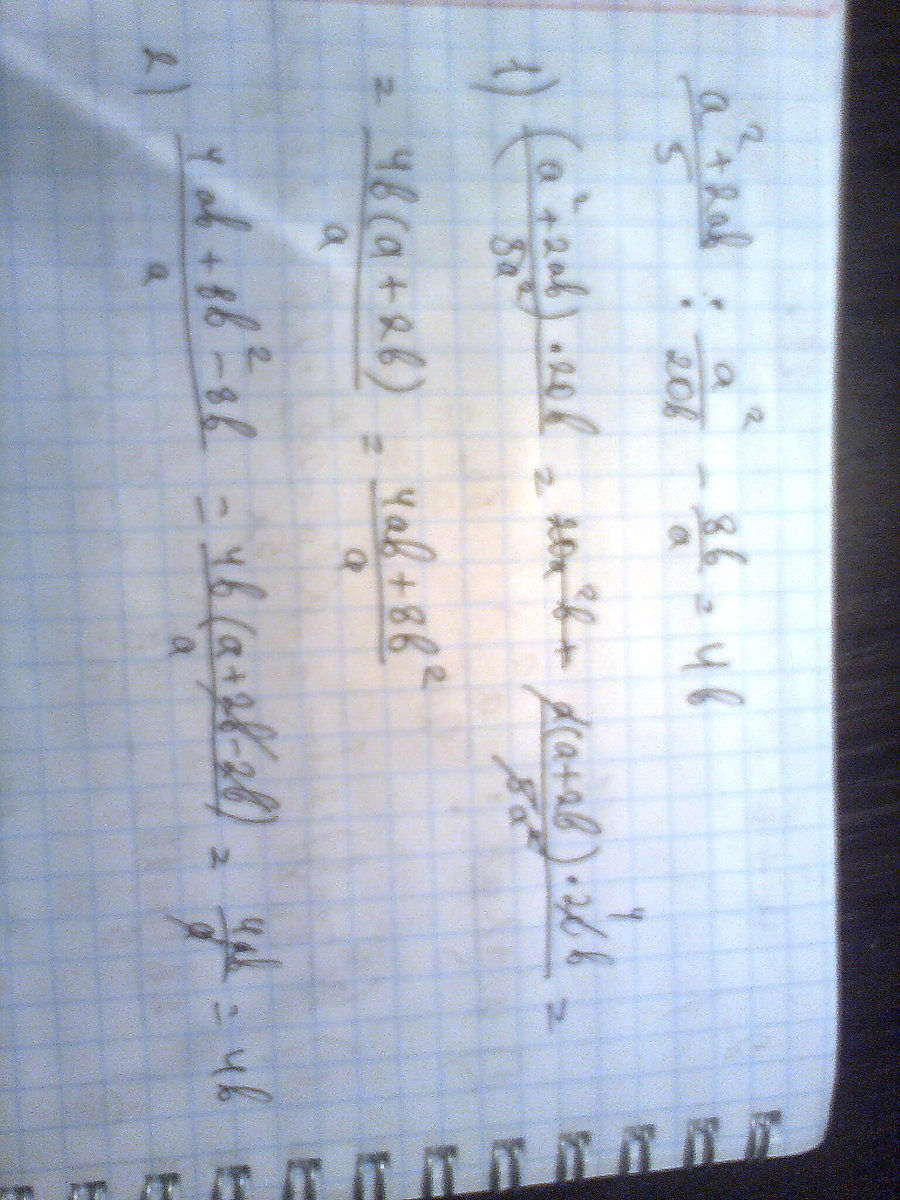 (a² + 2ab)/5 : a²/20b − 8b/a = 4b
1) ((a² + 2ab) · 20b)/5a² = a(a + 2b) · 20b/5a² =
= 4b(a + 2b)/a = (4ab + 8b²)/a
2) (4ab + 8b² − 8b)/a = 4b(a + 2b − 2b)/a = 4ab/a = 4b